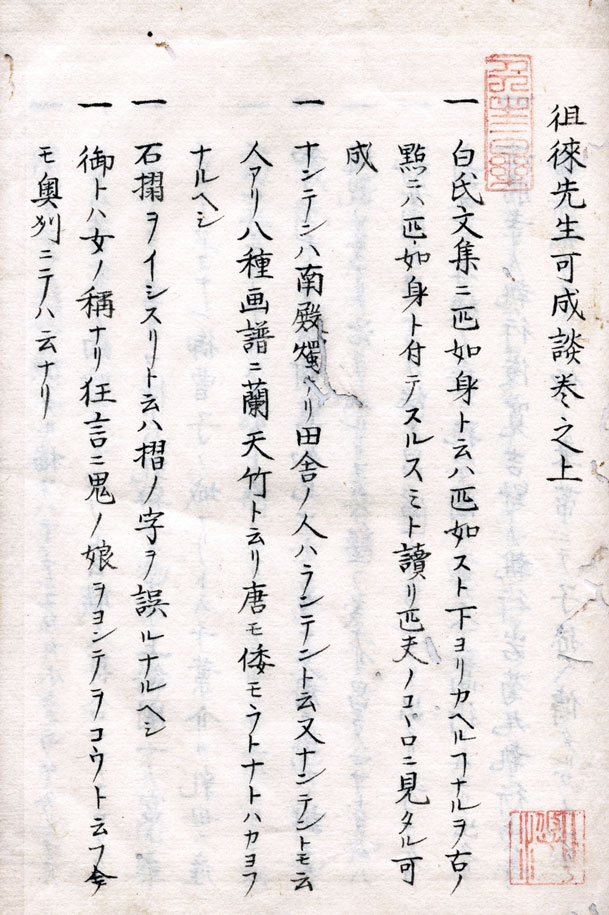 徂徠先生可成談巻之上
一 白氏文集ニ匹如身ト云ハ匹如スト下ヨリカヘルヿナルヲ古ノ
點ニハ匹如身ト付テスルスミト讀リ匹夫ノコヽロニ見タル可
成
一 ナンテンハ南殿燭ヘリ田舎ノ人ハランテント云又ナンテントモ云
人アリ八種画譜ニ蘭天竹ト云リ唐モ倭モラトナトハカヨフ
ナルヘシ
一 石摺ヲイシスリト云ハ摺ノ字ヲ誤ルナルヘシ
一 御トハ女ノ稱ナリ狂言ニ鬼ノ娘ヲヨンテヲコウト云フ今
モ奥列ニテハ云ナリ